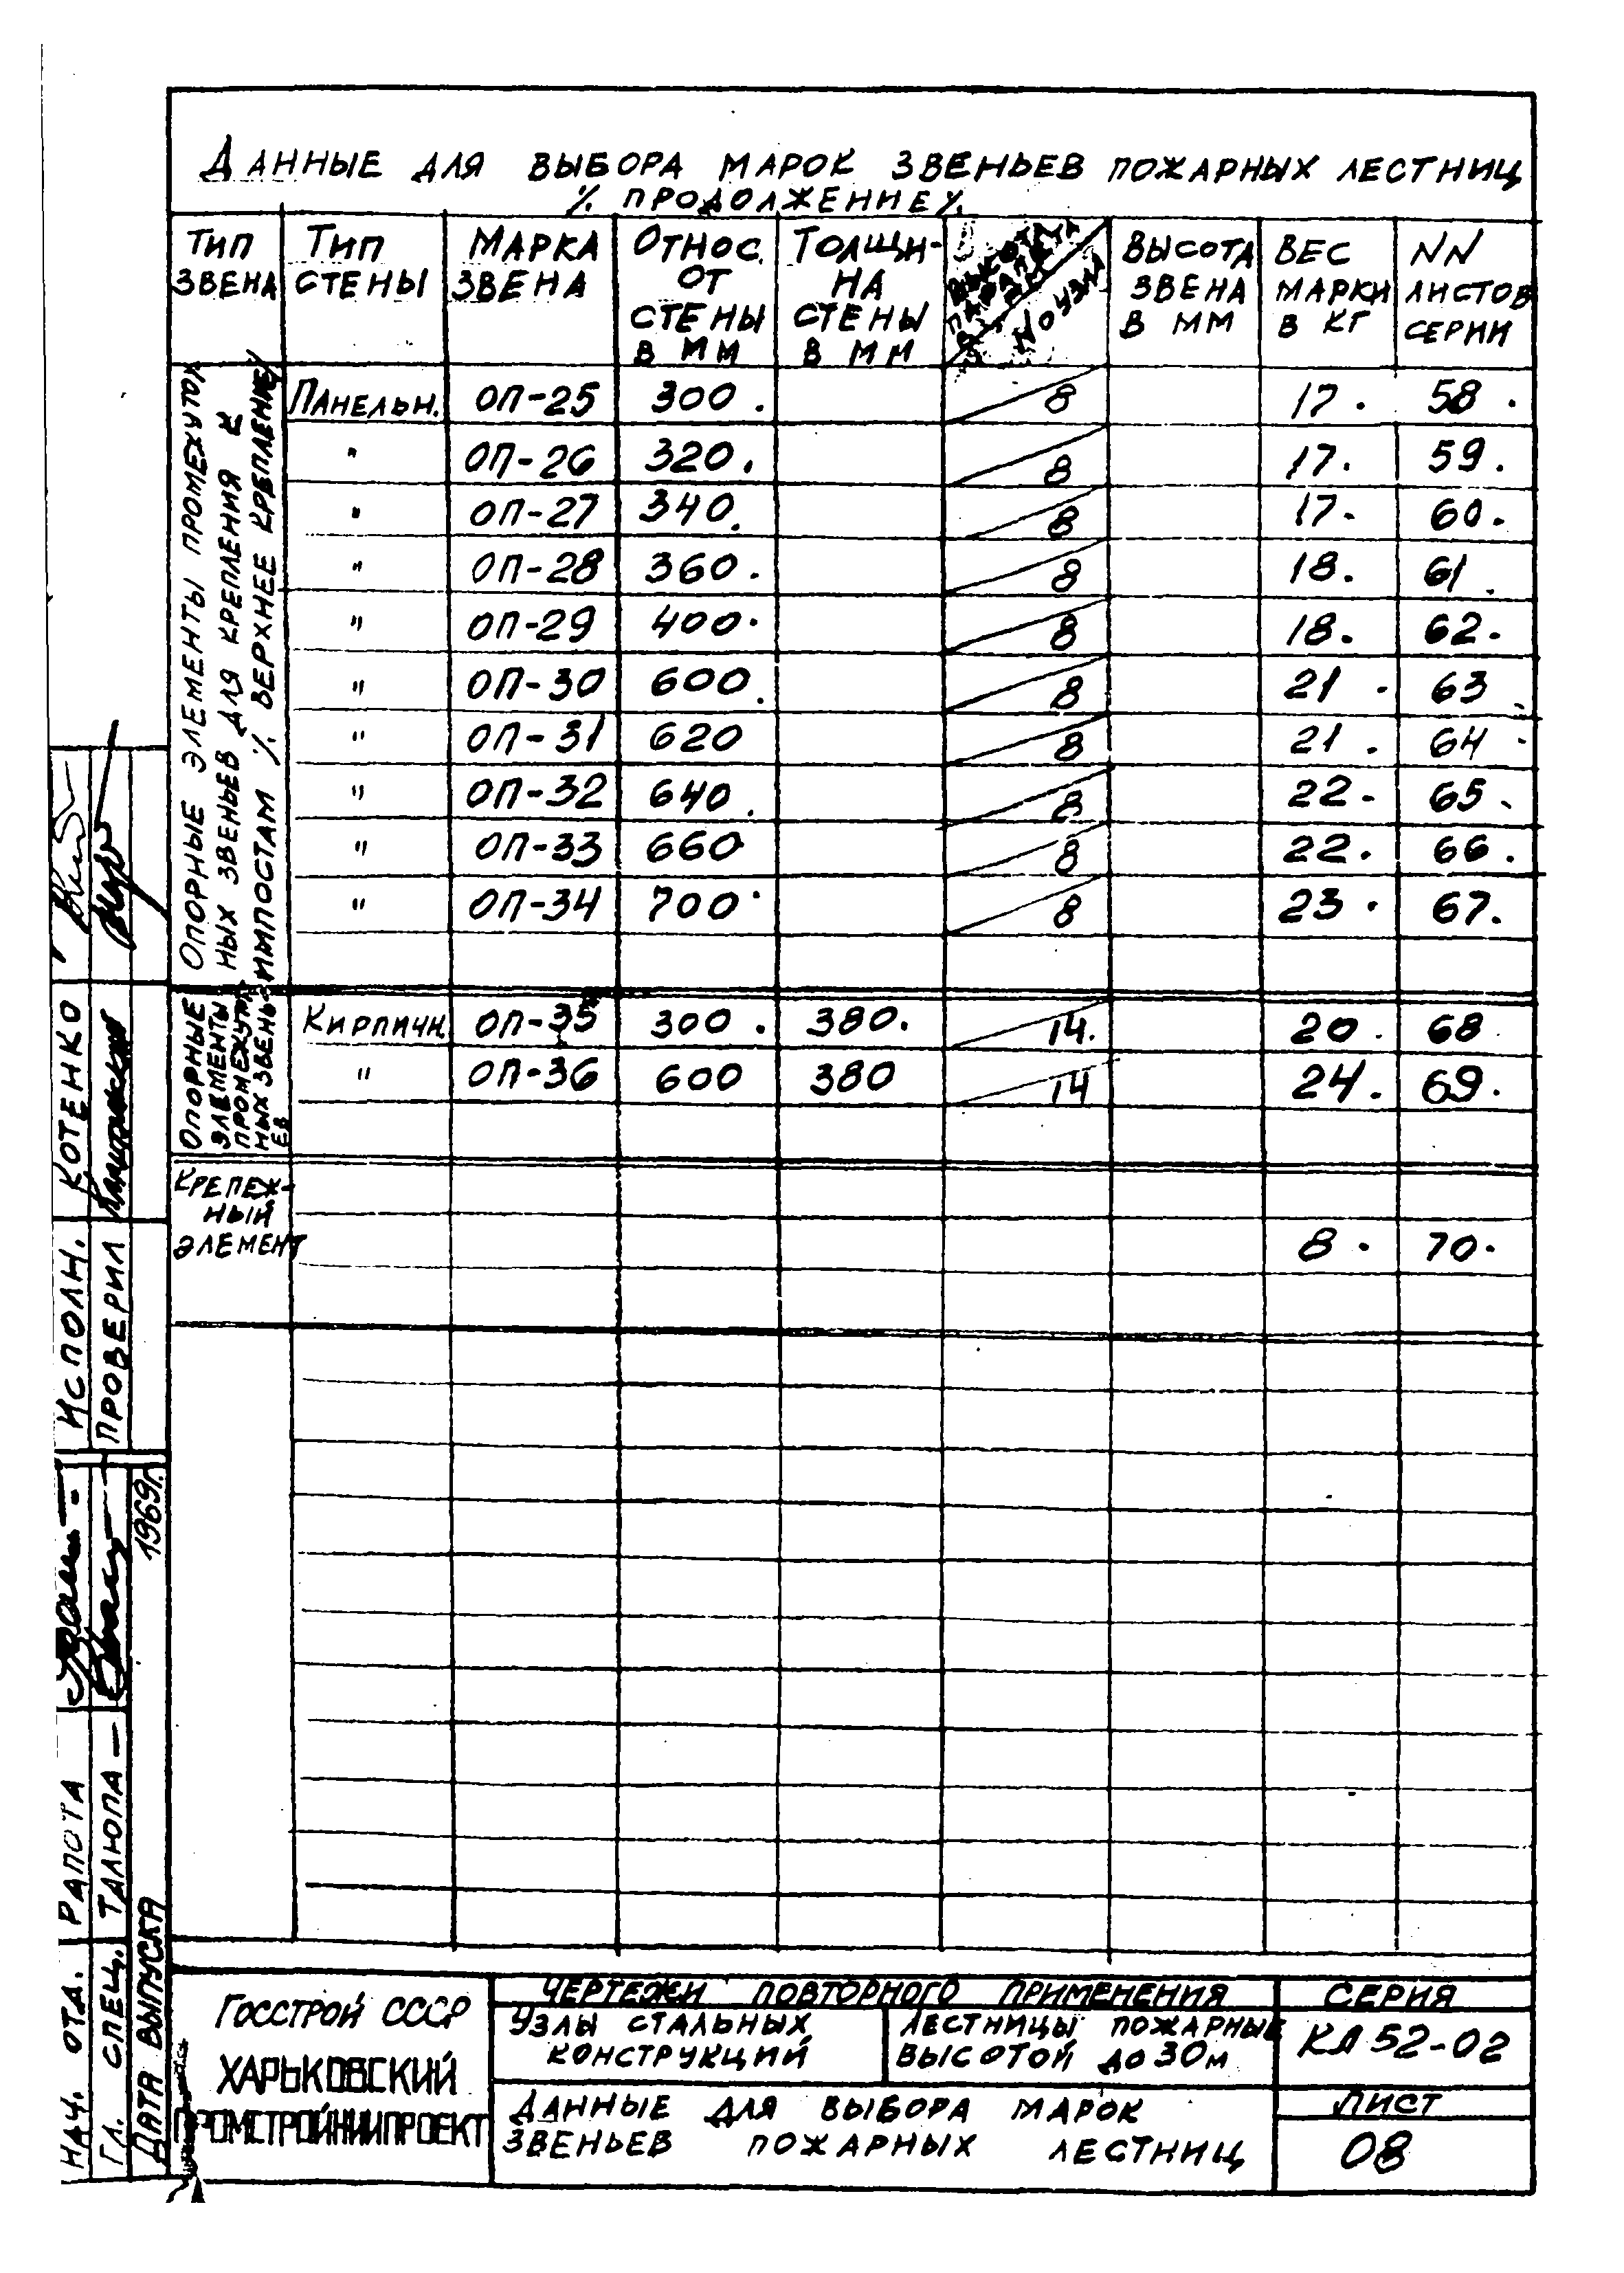 Данные для выбора марок звеньев пожарных лестниц
/. продолжение/.
Тип звена
Тип стены
Марка звена
Относ. от стены в мм
Толщина стены в мм
No узла
Высота звена в мм
Вес марки в кг
NN листов серии
Опорные элементы промежуточ
ных звеньев для крепления к
импостам /. верхнее крепление/
Панельн. ОП-25 300. 8 17. 58.
" ОП-26 320. 8 17. 59.
" ОП-27 340. 8 17. 60.
" ОП-28 360. 8 18. 61.
" ОП-29 400. 8 18. 62.
" ОП-30 600. 8 21. 63
" ОП-31 620 8 21. 64
" ОП-32 640. 8 22. 65.
" ОП-33 660 8 22. 66.
" ОП-34 700 8 23. 67.
Опорные
элементы
промежуточ
ных звень
ев
Кирпичн. ОП-35 300. 380. 14. 20. 68
" ОП-36 600 380 14 24. 69.
Крепеж-
ный
элемент 8. 70.
Исполн. Котенко
Проверил
Нач. отд. Рапота
Гл. спец. Талюпа
Дата выпуска 1969г.
Госстрой СССР
Харьковский
Промстройниипроект
Чертежи повторного применения
Узлы стальных
конструкций
Лестницы пожарные
высотой до 30м
Данные для выбора марок
звеньев пожарных лестниц
Серия
КЛ 52-02
Лист
08